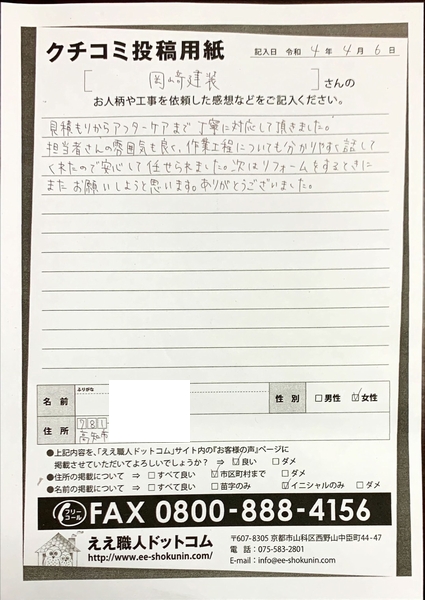 クチコミ投稿用紙
記入日 令和 4 年 4 月 6 日
[ 岡崎建装 ] さんの
お人柄や工事を依頼した感想などをご記入ください。
見積もりからアフターケアまで丁寧に対応して頂きました。
担当者さんの雰囲気も良く、作業工程についても分かりやすく話して
くれたので安心して任せられました。次はリフォームをするときに
またお願いしようと思います。ありがとうございました。
ふりがな
名前
性別 □男性 ☑女性
住所
781
高知市
●上記内容を、「ええ職人ドットコム」サイト内の『お客様の声』ページに
掲載させていただいてよろしいでしょうか? ⇒ ☑良い □ダメ
●住所の掲載について ⇒ □すべて良い ☑市区町村まで □ダメ
●名前の掲載について ⇒ □すべて良い □苗字のみ ☑イニシャルのみ □ダメ
フリーコール FAX 0800-888-4156
ええ職人ドットコム
http://www.ee-shokunin.com/
〒607-8305 京都市山科区西野山中臣町44-47
電話:075-583-2801
E-mail:info@ee-shokunin.com